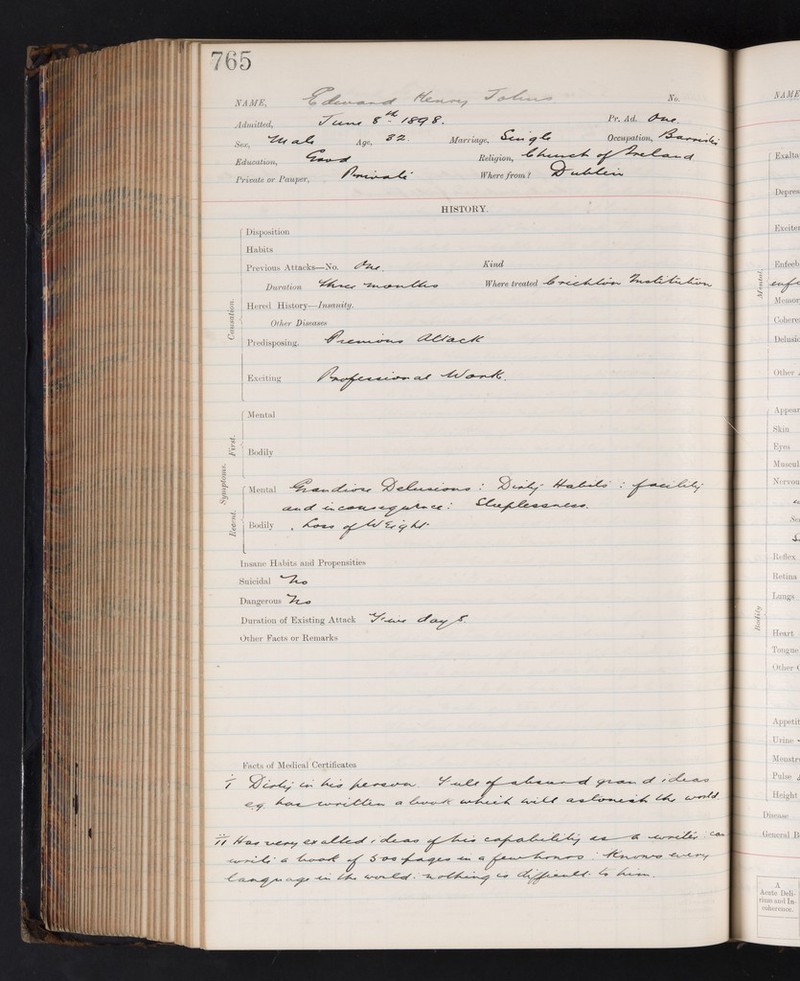 765
NAME, Edward Henry Johns No.
Admitted, June 8th 1898. Pr. Ad. One.
Sex, Male Age, 32. Marriage, Single Occupation, Barrister
Education, Good Religion, Church of Ireland
Private or Pauper, Private Where from? Dublin
HISTORY.
Disposition
Habits
Previous Attacks—No. One. Kind
Duration Three months Where treated Crichton Institution
Hered History—Insanity.
Other Diseases
Causation.
Predisposing. Previous Attack
Exciting Professional Work.
Symptoms.
First.
Mental
Bodily
Recent.
Mental Grandiose Delusions : Dirty Habits : facility
and inconsequence : Sleeplessness.
Bodily . Loss of Weight.
Insane Habits and Propensities
Suicidal No
Dangerous No
Duration of Existing Attack Five days.
Other Facts or Remarks
Facts of Medical Certificates
I Dirty in his person. Full of absurd grand ideas
e.g. has written a book which will astonish the world.
II Has very exalted ideas of his capability as a writer. can
write a book of 500 pages in a few hours : Knows every
language in the world : nothing is difficult to him.
NAME
Exalta
Depres
Excite
Enfeeb
Mental.
enf
Memor
Cohere
Delusio
Other
Appear
Skin
Eyes
Muscul
Nervou
Reflex
Retina
Lungs
Bodily
Heart
Tongue
Other
Appetit
Urine
Menstr
Pulse
Height
Disease
General B
A
Acute Deli-
rium and In-
coherence.